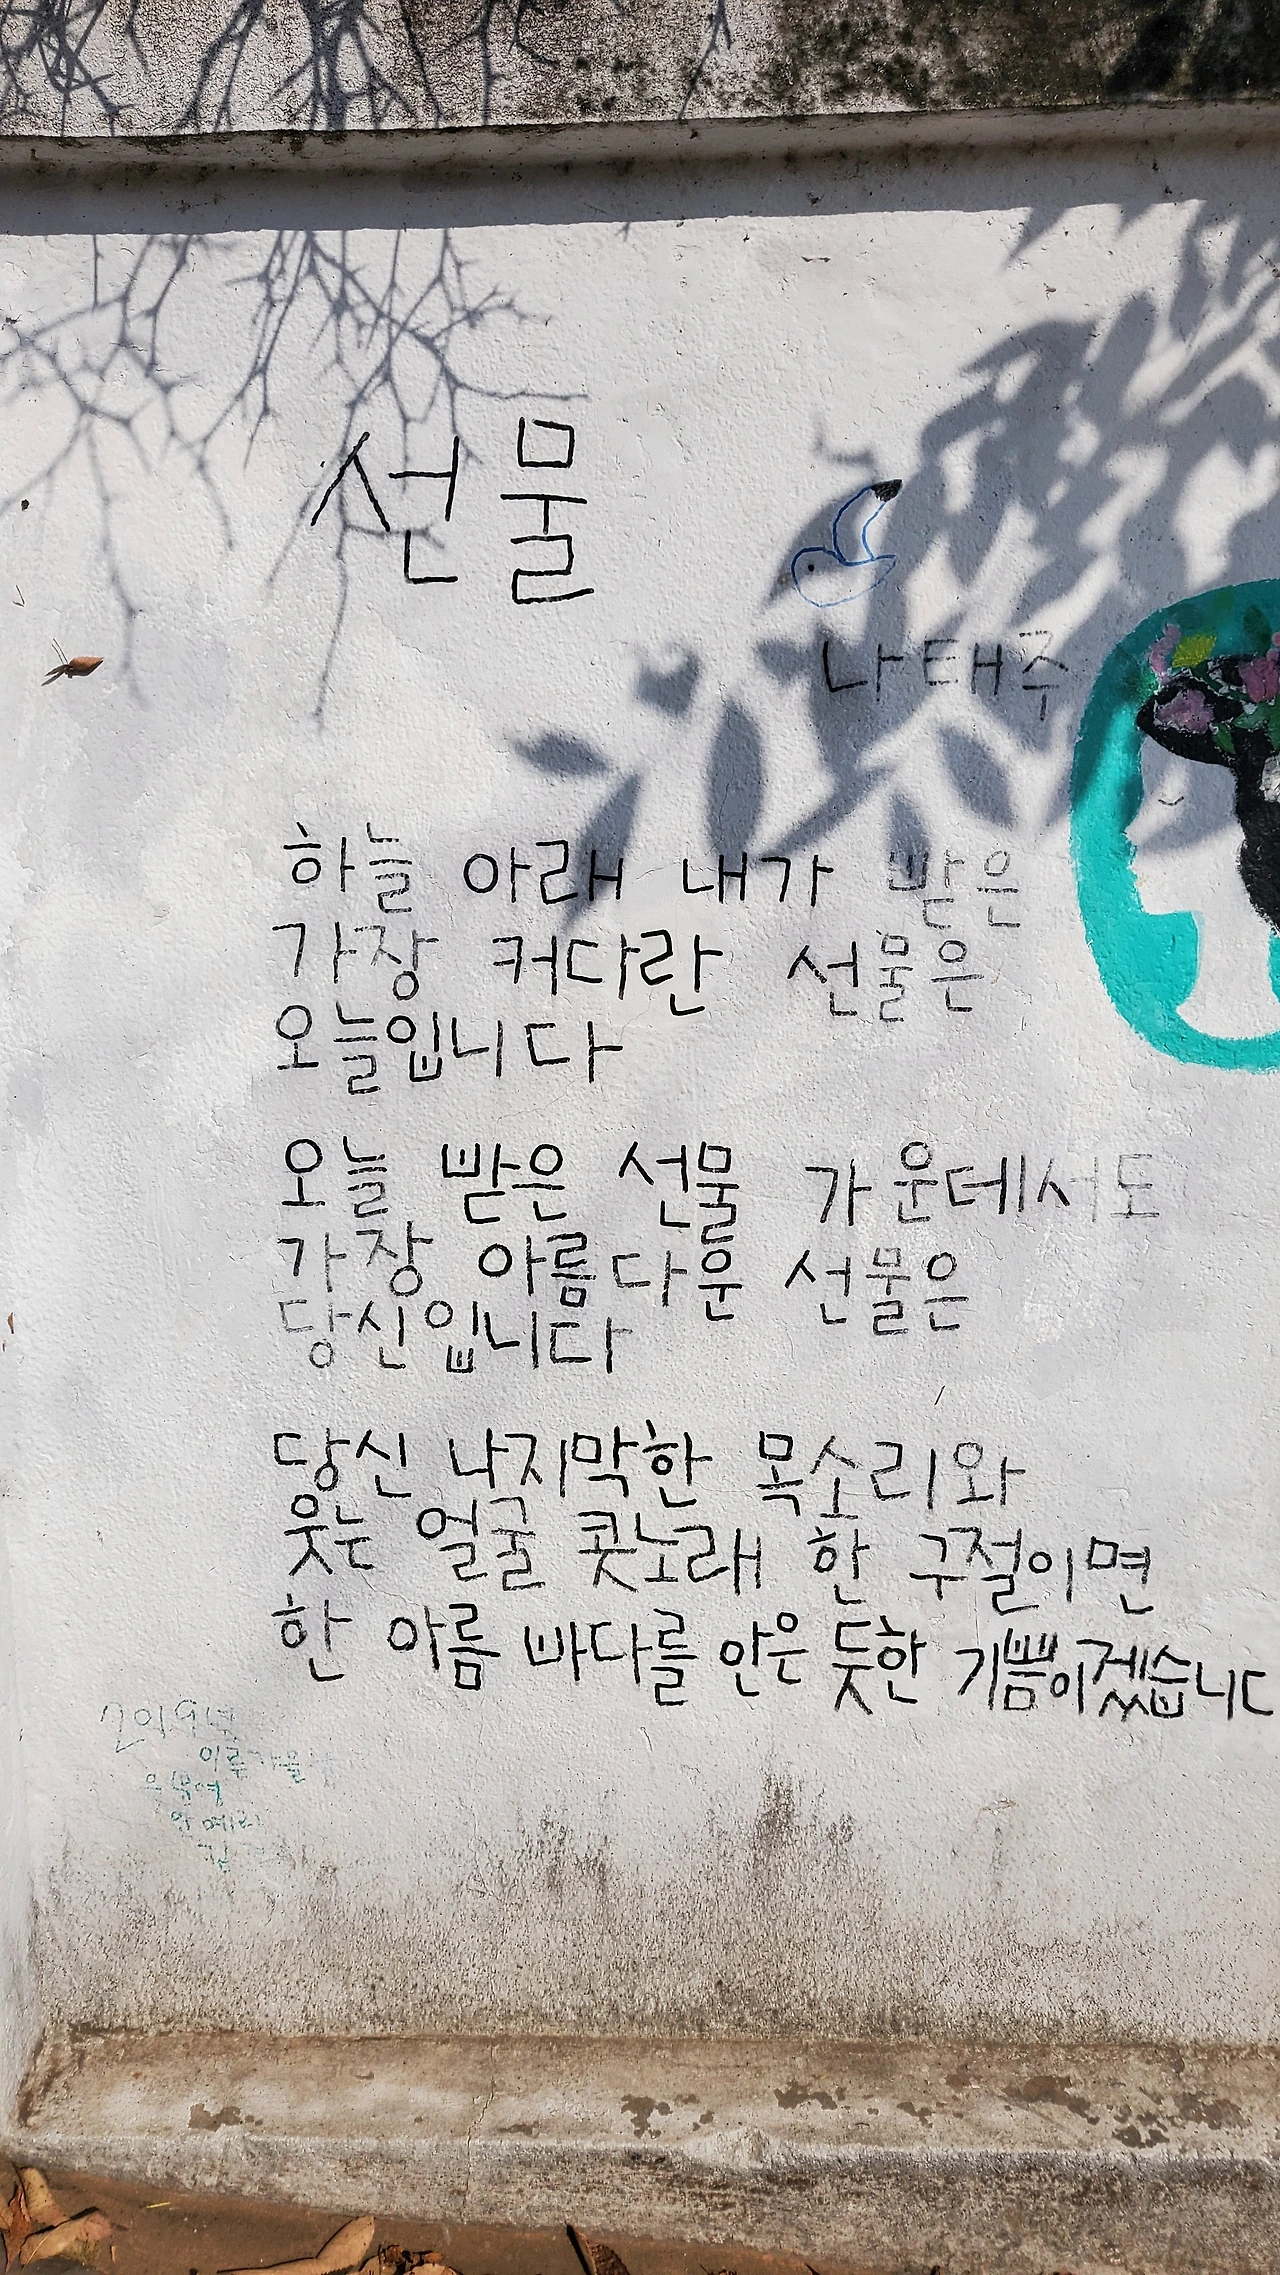 선물
나태주
하늘 아래 내가 받은
가장 커다란 선물은
오늘입니다
오늘 받은 선물 가운데서도
가장 아름다운 선물은
당신입니다
당신 나지막한 목소리와
웃는 얼굴 콧노래 한 구절이면
한 아름 바다를 안은 듯한 기쁨이겠습니다
2019년